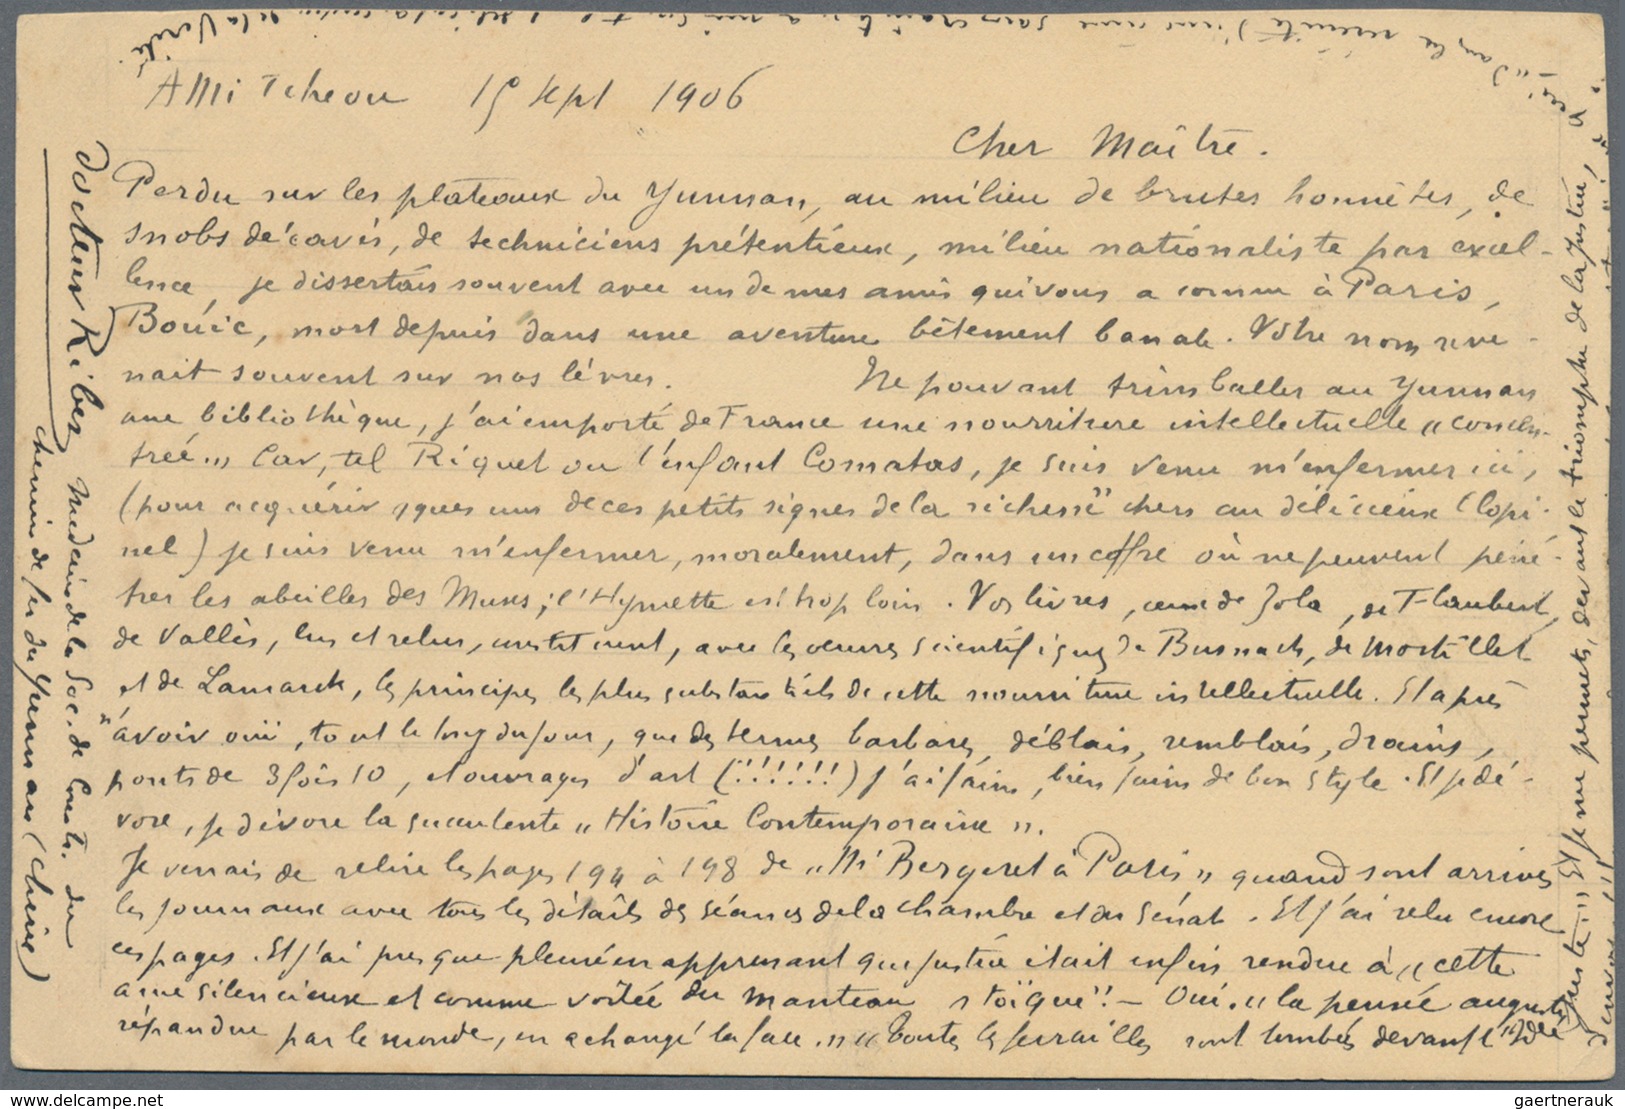 AMi Tcheou 15 Sept 1906
Cher Maître.
Perdu sur les plateaux du Yunnan, au milieu de brutes honnêtes, de
snobs décavés, de techniciens prétentieux, milieu nationaliste par excel-
lence, je dissertais souvent avec un de mes amis qui vous a connu à Paris,
Bouïc, mort depuis dans une aventure bêtement banale. Votre nom reve-
nait souvent sur nos lèvres. Ne pouvant trimballer au Yunnan
une bibliothèque, j'ai emporté de France une nourriture intellectuelle "concen-
trée". Car, tel Riquet ou l'enfant Comatas, je suis venu m'enfermer ici,
(pour acquérir qques uns de ces petits signes de la richesse" chers au délicieux Clopi-
nel) je suis venu m'enfermer, moralement, dans un coffre où ne peuvent péné-
trer les abeilles des Muses; l'Hymette est trop loin. Vos livres, ceux de Zola, de Flaubert,
de Vallès, lus et relus, constituent, avec les oeuvres scientifiques de de Mortillet
et de Lamarck, les principes les plus substantiels de cette nourriture intellectuelle. Et après
"avoir ouï, tout le long du jour, que des termes barbares, déblais, remblais, drains,
ponts de 3 fois 10, et ouvrages d'art (!!!!!!!) j'ai faim, bien faim de bon style. Et je dé-
vore, je dévore la succulente "Histoire Contemporaine".
Je venais de relire les pages 194 à 198 de "Mr Bergeret à Paris" quand sont arrivés
les journaux avec tous les détails des séances de la chambre et du Sénat. Et j'ai relu encore
ces pages. Et j'ai presque pleuré en apprenant que justice était enfin rendue à "cette
âme silencieuse et comme voilée du manteau stoïque"! - Oui, "la pensée auguste
répandue par le monde, en a changé la face." "Toutes les ferrailles sont tombées devant l'Idée
juste." Et je me permets, devant le triomphe de la Justice,
"dans la sérénité d'une âme sans crainte
de la Vérité
Docteur Ribes
Médecin de la Soc. de Constr. du
chemin de fer du Yunnan (Chine)
gaertnerauk